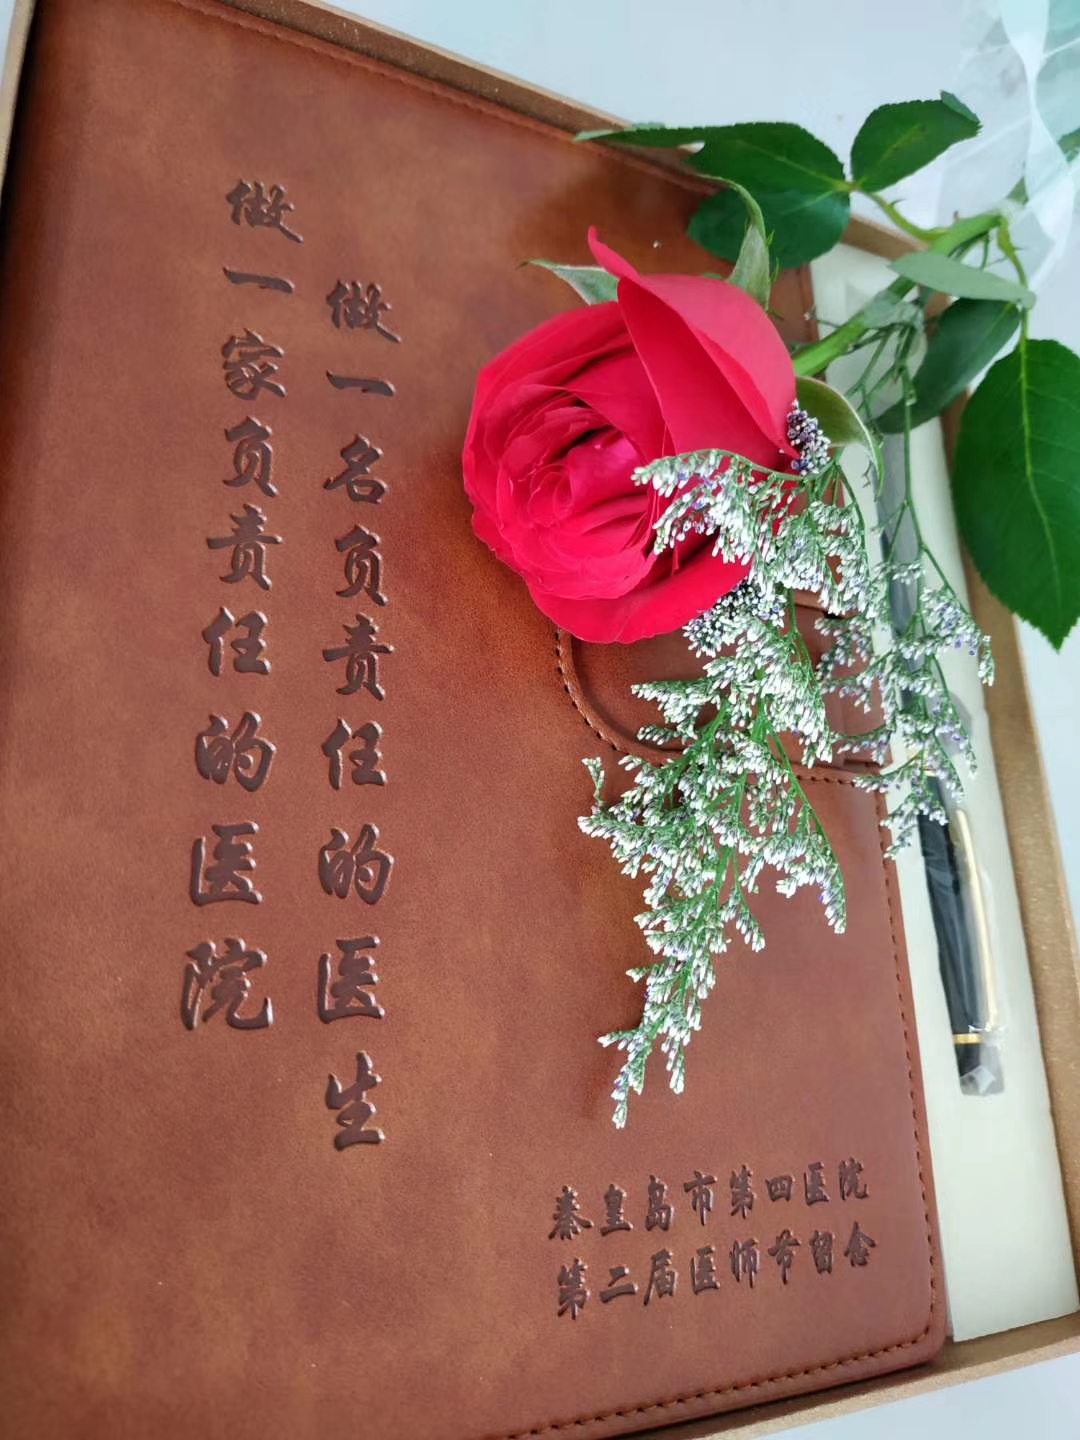 做一家负责任的医院
做一名负责任的医生
秦皇岛市第四医院
第二届医师节留念